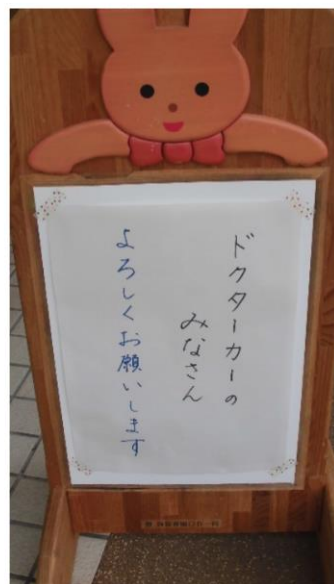 ドクターカーの
みなさん
よろしくお願いします